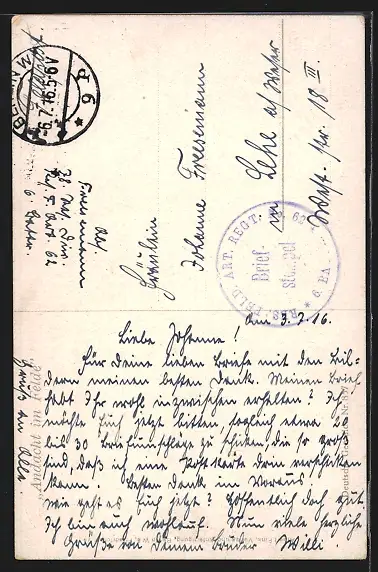 Feldpost
6.7.16.5-6V
d
Abs.
Freesemann
Res. Feld. Art. 62
6. Batter.
Fräulein
Johanne Freesemann
in Lehe a/ Weser
Str. 18 III.
RES. FELD. ART. REGT. No. 62
6. BA
Brief-
stempel
Am 3.7.16.
Liebe Johanne!
Für deine lieben Briefe mit den Bil-
dern meinen besten Dank. Meinen Brief
habt Ihr wohl inzwischen erhalten? Ich
möchte Euch jetzt bitten, sogleich etwa 20
bis 30 Briefumschläge zu schicken, die so groß
sind, daß ich eine Postkarte darin verschicken
kann. Besten Dank im Voraus!
Wie geht es Euch jetzt? Hoffentlich doch gut.
Ich bin auch wohlauf. Nun viele herzliche
Grüße von Deinem Bruder Willi
Gruß an Alle.
"Andacht im Felde"